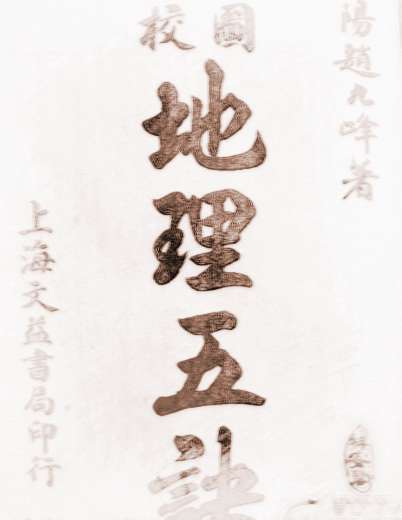 陽趙九峰著
校圖
地理五訣
上海文益書局印行